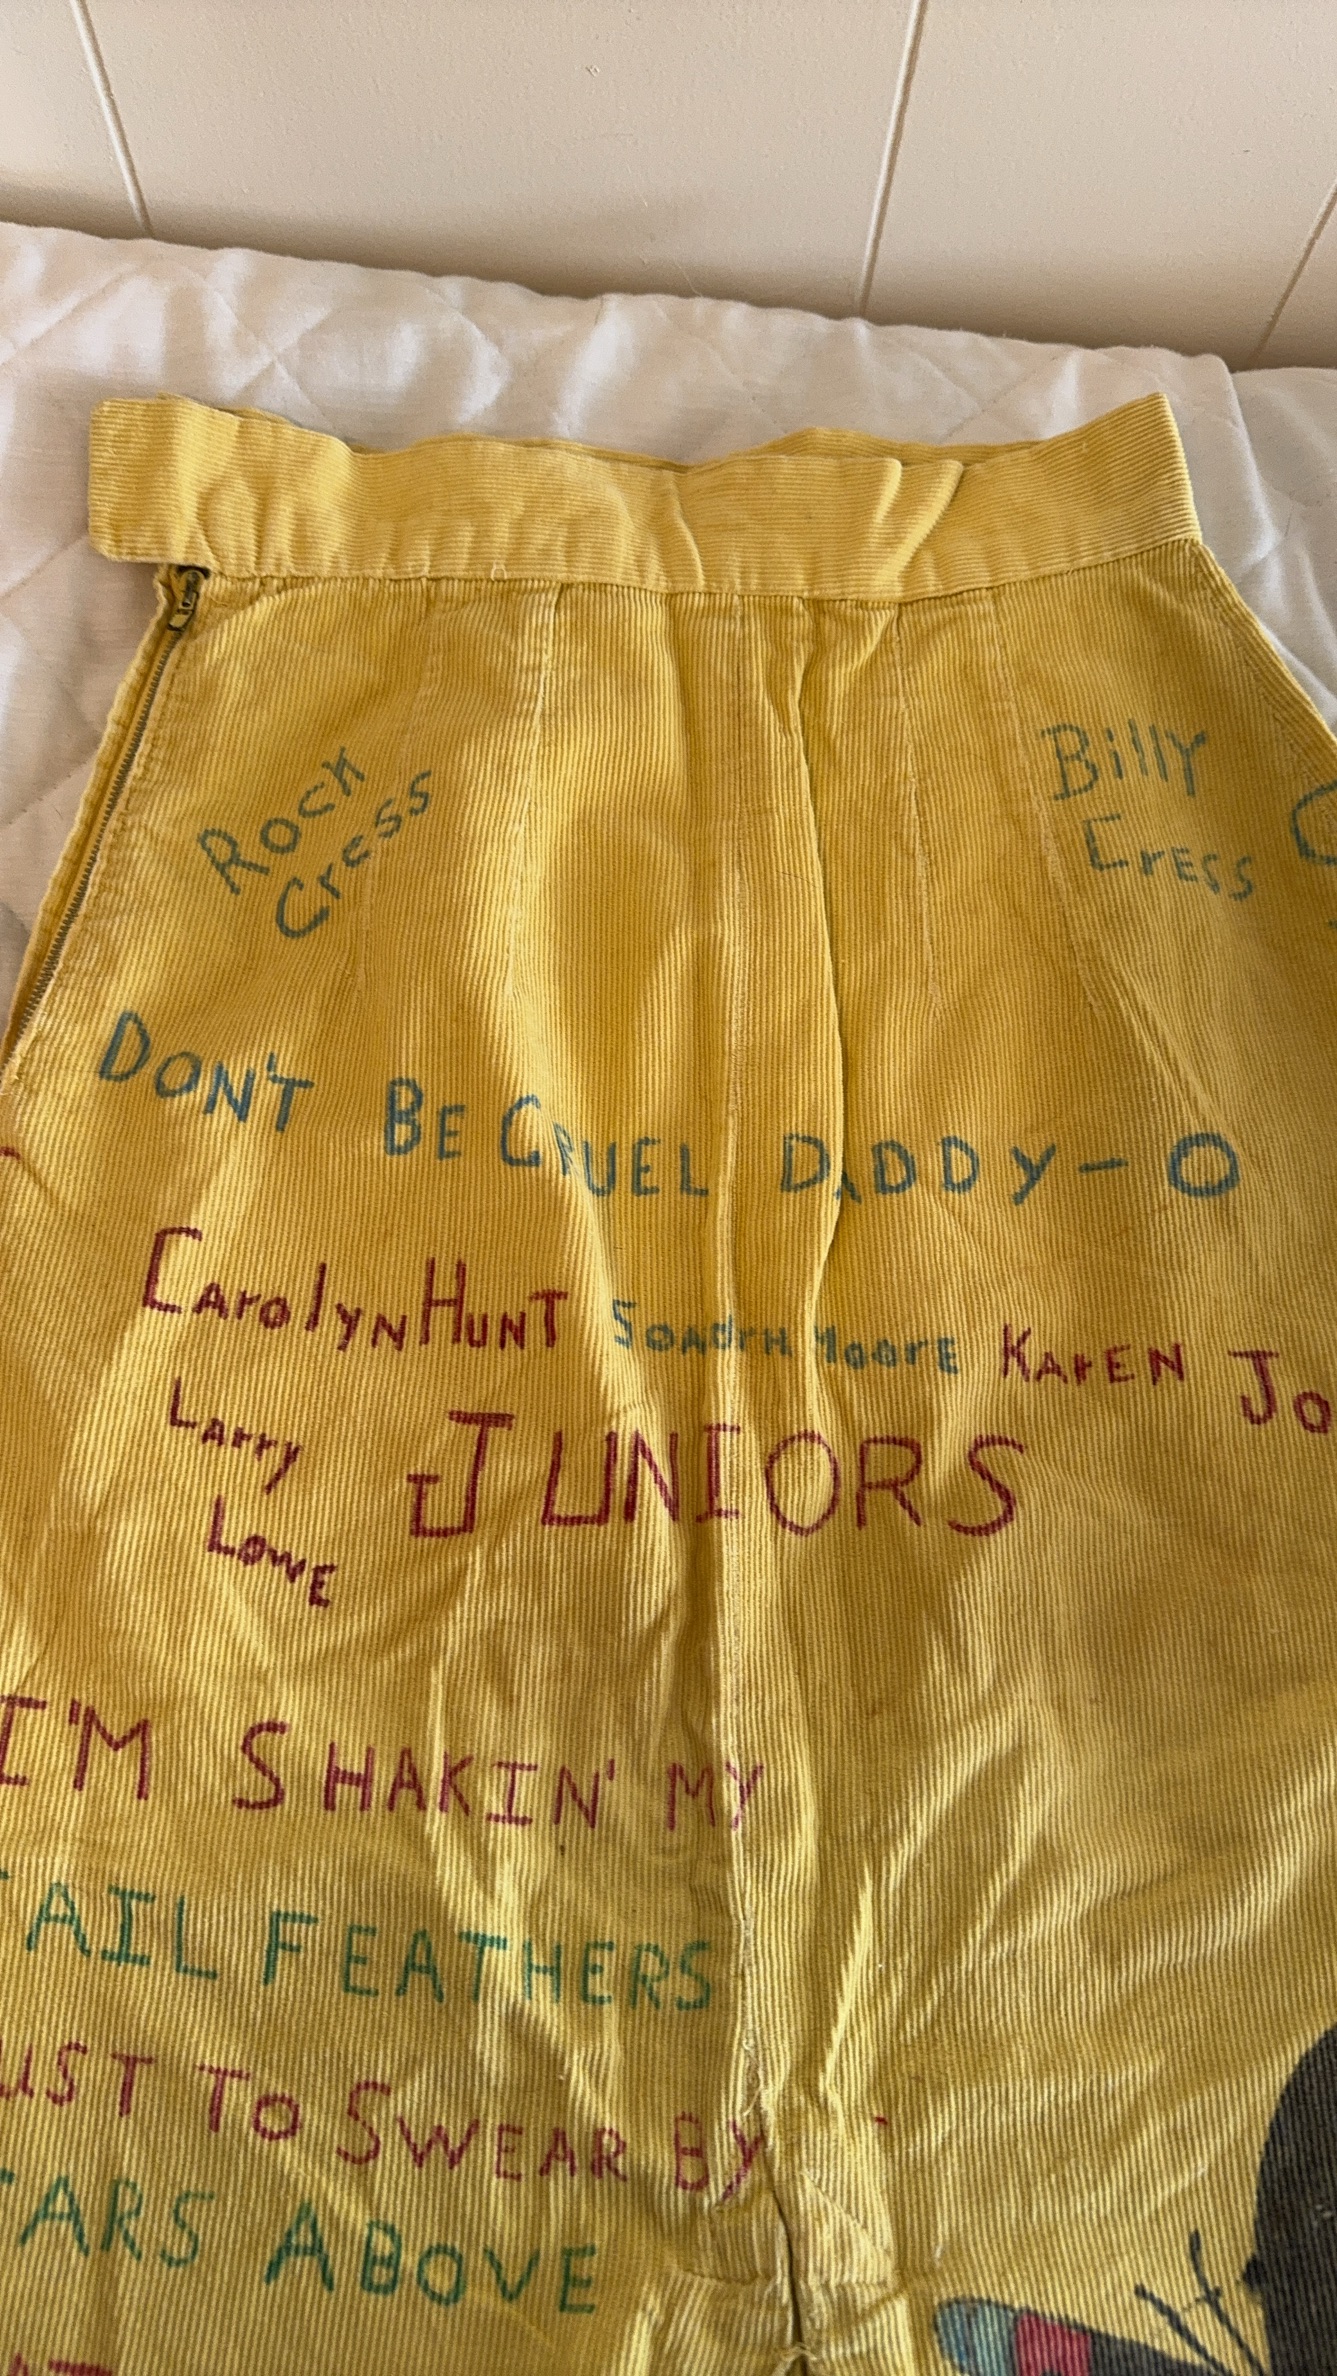 Rock
Cress
Billy
Cress
DON'T BE CRUEL DADDY-O
Carolyn Hunt Moore Karen Jo
Larry
Lowe
JUNIORS
I'M SHAKIN' MY
TAIL FEATHERS
UST TO SWEAR BY
TARS ABOVE